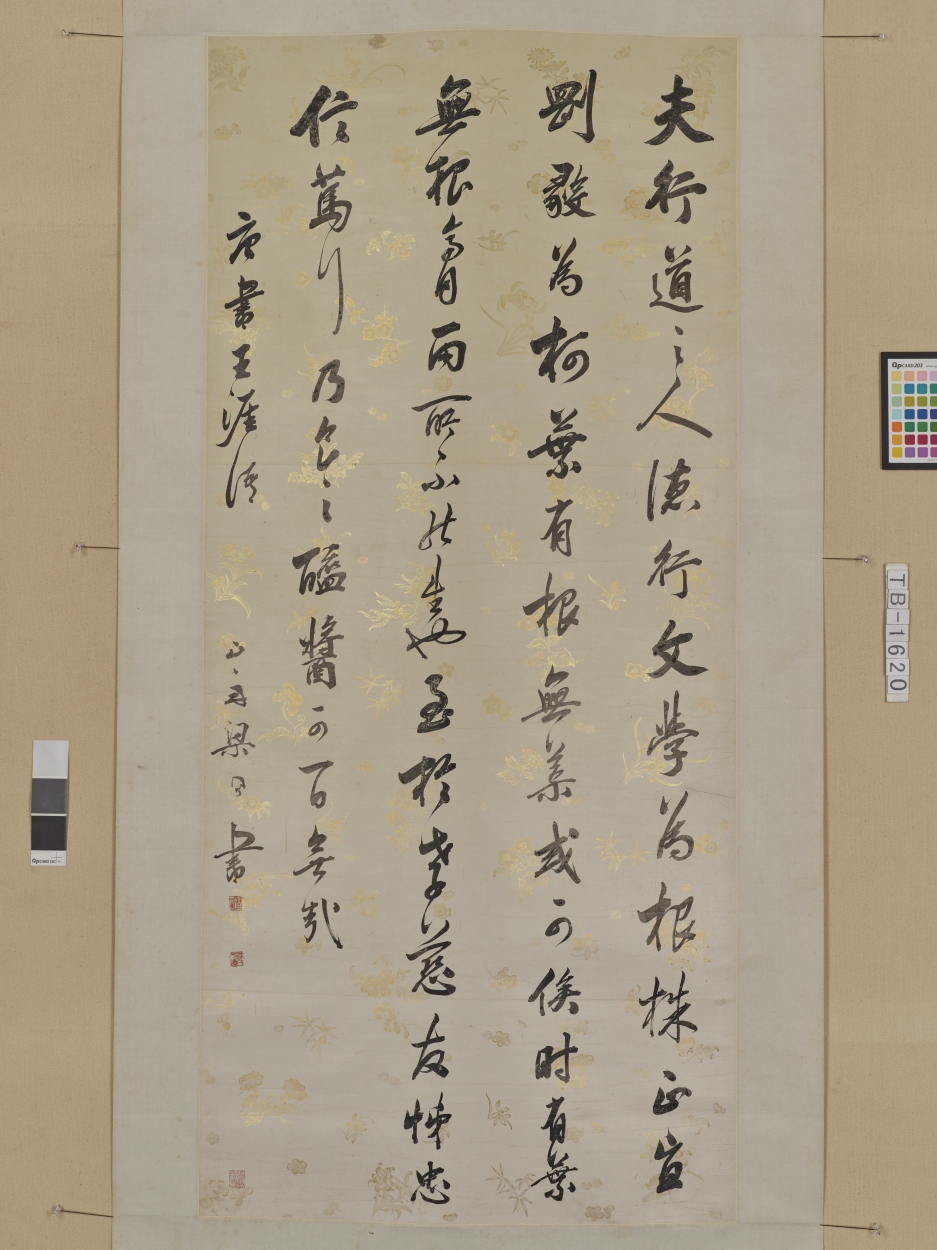 夫行道之人德行文學為根株正直
剛毅為柯葉有根無葉或可俟時有葉
無根膏雨所不能生也至於孝慈友悌忠
信篤行乃食之醯醬可一日無哉
唐書王涯 山舟梁同書
TB-1620
QpCARD 203
QpCARD